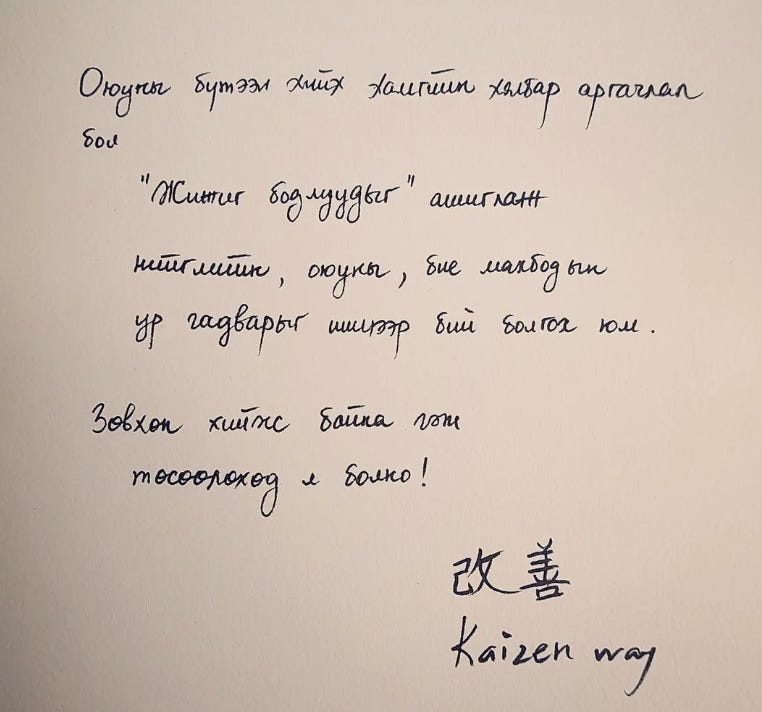 Оюуны бүтээл хийх хамгийн хялбар аргачлал
бол
"Жижиг бодлуудыг" ашиглаж
нийгмийн, оюуны, бие махбодын
ур чадварыг шинээр бий болгох юм.
Зөвхөн хийж байна гэж
төсөөлөхөд л болно!
改善
Kaizen way